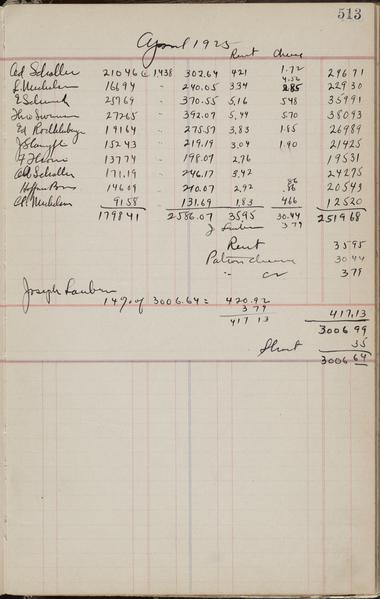 513
April 1925
Rent Cheese
Ad Schaller 21046 @ 1438 302.64 421 1.72 296 71
4.36
L Michelsen 166 94 " 240.05 3.34 2.85 229 30
E Schenck 257 69 " 370.55 5.16 548 359 91
272 65 " 392.07 5.44 5 70 380 93
Ed 191 64 " 275.57 3.83 1.85 269 89
J 152 43 " 219.19 3.04 1.90 214 25
137 74 " 198.07 2.76 195 31
Schaller 171.19 " 246.17 3.42 242 75
86
Bros 146.09 " 210.07 2,92 .86 205 43
Michelsen 91 58 131.69 1.83 466 125 20
1798 41 2586.07 35 95 30.44 2519 68
J Lauber 3 79
Rent 35 95
Patron cheese 30 44
" 3 79
Joseph Lauber
14% of 3006.64 = 420.92
3 79 417.13
417 13 3006 99
Short 35
3006 64